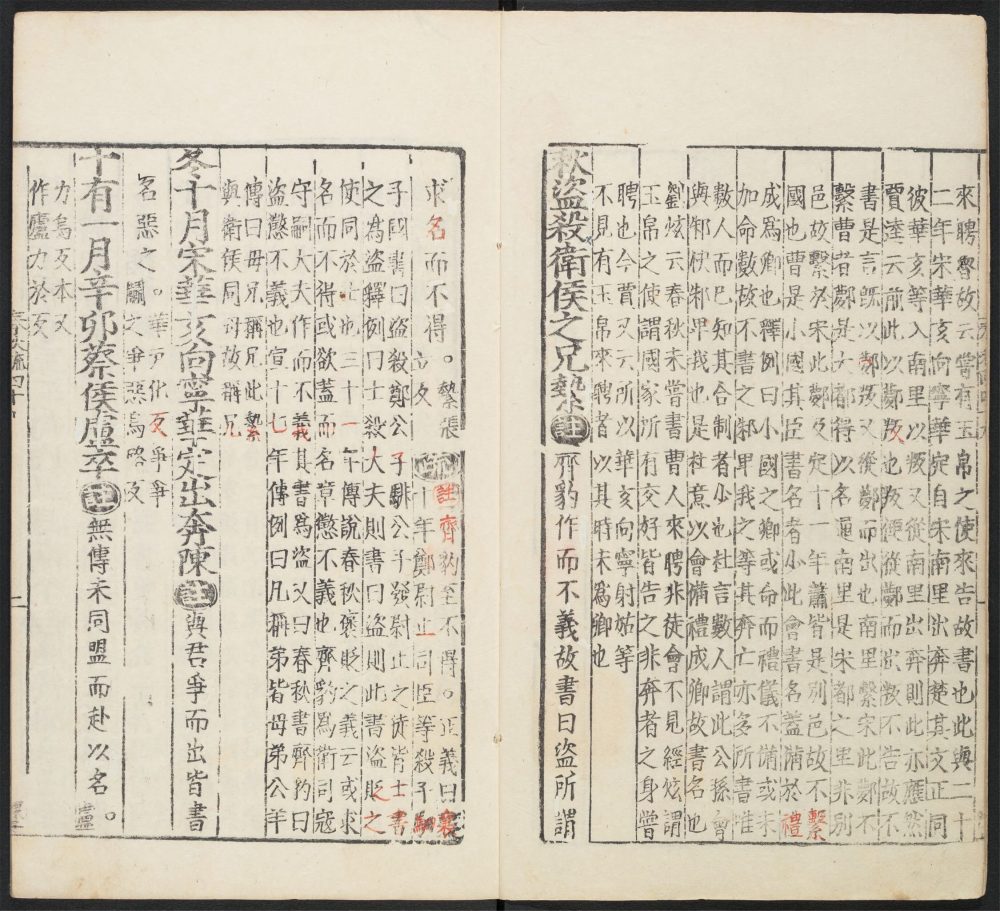 來聘魯故云嘗有玉帛之使來告故書也此與二十
二年宋華亥向寧華定自宋南里出奔楚其文正同
彼華亥等入南里以叛又從南里出奔則此亦應然
賈逵云前此以鄸叛也叛便從鄸而出叛不告故不
書是言既以鄸叛又後鄸而出也南里繫宋此鄸不
繫曹者鄸是大都得以名通南里是宋都之里非別
邑故繫於宋此鄸及定十一年蕭皆是別邑故不繫
國也曹是小國其臣書名者少此會書名蓋備於禮
成爲卿也釋例曰小國之卿或命而禮儀不備或未
加命數故不書之邾卑我之等其奔亡亦多所書唯
數人而已知其合制者少也杜言數人謂此公孫會
與邾快邾卑我也是杜意以會備禮成卿故書名也
劉炫云春秋未嘗書曹人來聘非徒會不見經炫謂
玉帛之使謂國家所有交好皆告之非奔者之身嘗
聘也今賈又云所以華亥向寧射姑等
不見有玉帛來聘者以其時未爲卿也
秋盜殺衛侯之兄縶註齊豹作而不義故書曰盜所謂
求名而不得。縶張立反疏註齊豹至不得。正義曰襄
十年鄭尉止司臣等殺子駟
子國書曰盜殺鄭公子騑公子發尉止之徒皆士書
之爲盜釋例曰士殺大夫則書曰盜則此書盜貶之
使同於士也三十一年傳說春秋褒貶之義云或求
名而不得或欲蓋而名章懲不義也齊豹為衛司寇
守嗣大夫作而不義其書爲盜又曰春秋書齊豹曰
盜懲不義也宣十七年傳例曰凡稱弟皆母弟公羊
傳曰母兄稱兄此縶
與衛侯同母故稱兄
冬十月宋華亥向寧華定出奔陳註與君爭而出皆書
名惡之。華戶化反爭爭
鬬之爭惡烏路反
十有一月辛卯蔡侯廬卒註無傳未同盟而赴以名。廬
力烏反本又
作廬力於反